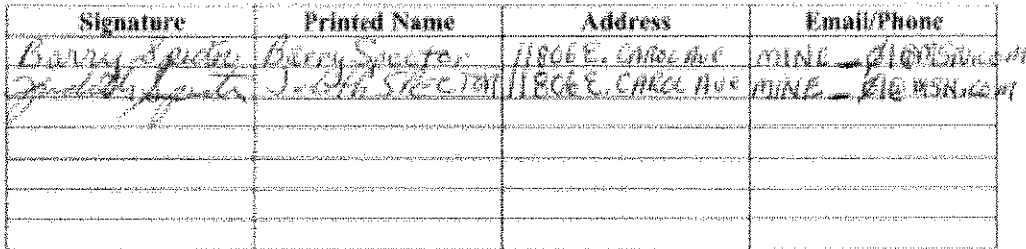 Signature Printed Name Address Email/Phone
Barry Spector Barry Spector 11806 E. CAROL AVE
Judith Spector Judith SPECTOR 11806 E. CAROL AVE